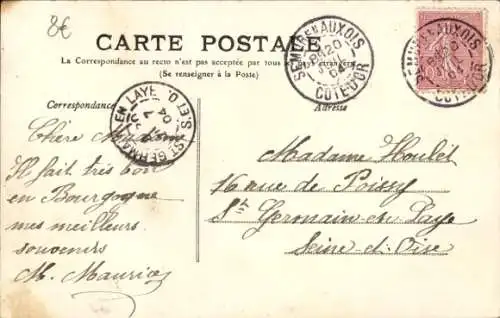 8€
CARTE POSTALE
La Correspondance au recto n'est pas acceptée par tous les pays étrangers
(Se renseigner à la Poste)
SEMUR EN AUXOIS
COTE-D'OR
SEMUR EN AUXOIS
COTE-D'OR
Correspondance
ST GERMAIN EN LAYE
S. ET O.
Adresse
Chère Madame
Il fait très bon
en Bourgogne
mes meilleurs
souvenirs
M. Maurice
Madame Houlet
16 rue de Poissy
St Germain en Laye
Seine et Oise